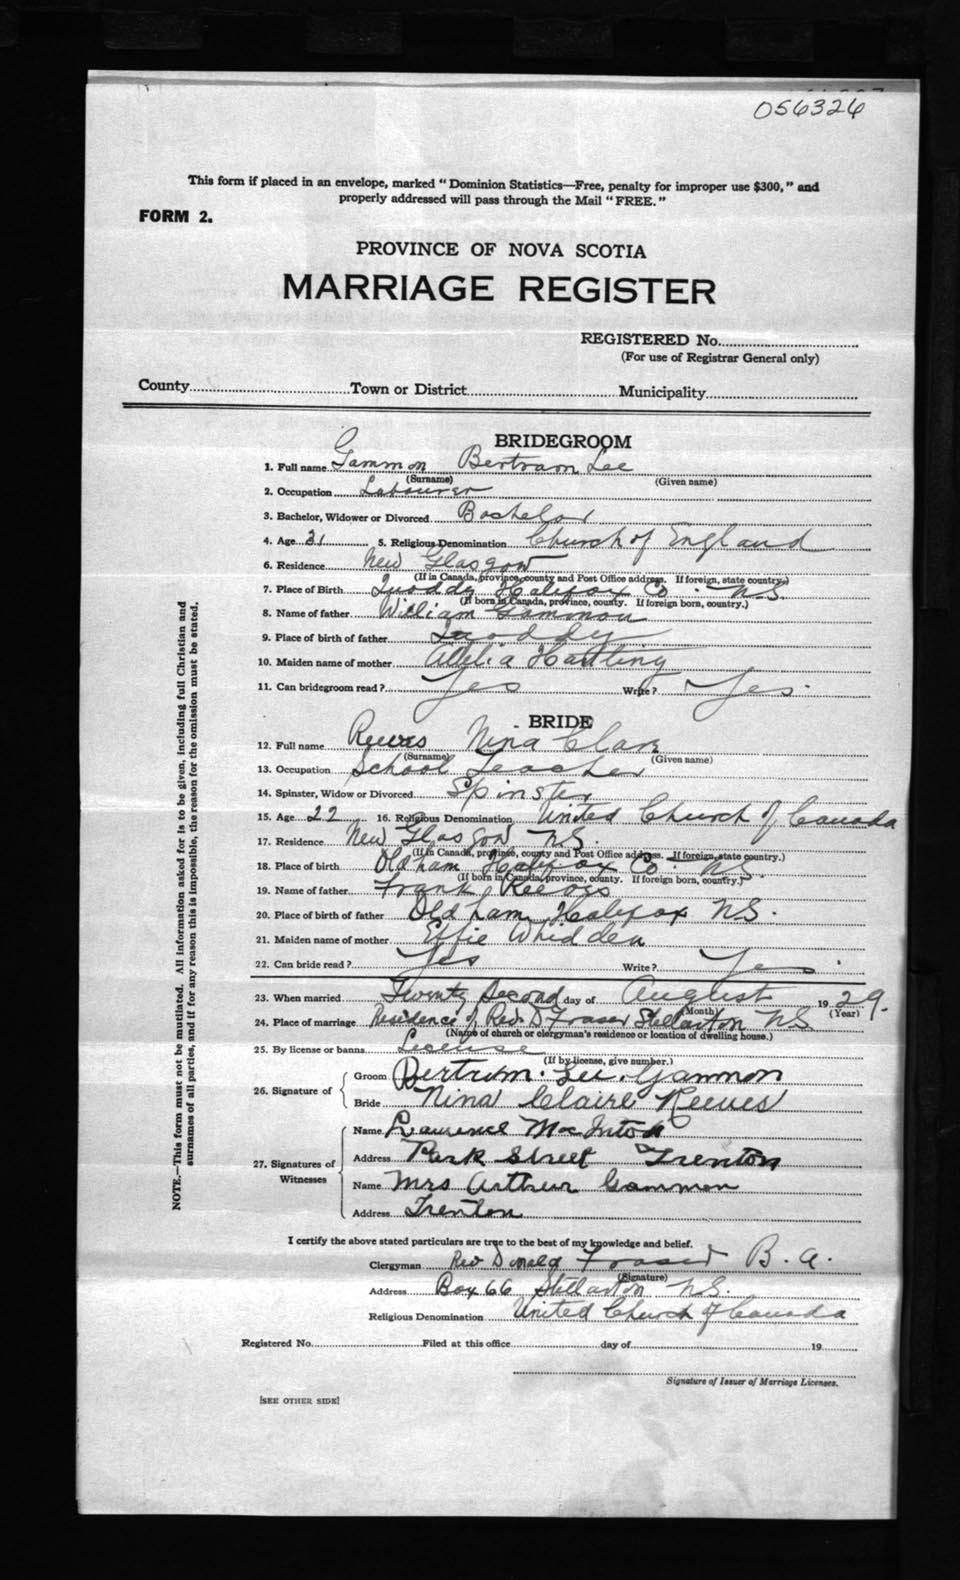 056326
This form if placed in an envelope, marked "Dominion Statistics—Free, penalty for improper use $300," and
properly addressed will pass through the Mail "FREE."
FORM 2.
PROVINCE OF NOVA SCOTIA
MARRIAGE REGISTER
REGISTERED No.
(For use of Registrar General only)
County Town or District Municipality
BRIDEGROOM
1. Full name Gammon Bertram Lee
(Surname) (Given name)
2. Occupation Labourer
3. Bachelor, Widower or Divorced Bachelor
4. Age 31 5. Religious Denomination Church of England
6. Residence New Glasgow
(If in Canada, province, county and Post Office address. If foreign, state country.)
7. Place of Birth Quoddy Halifax Co N.S.
(If born in Canada, province, county. If foreign born, country.)
8. Name of father William Gammon
9. Place of birth of father Quoddy
10. Maiden name of mother Hartling
11. Can bridegroom read? Yes Write? Yes.
BRIDE
12. Full name Reeves Nina Clare
(Surname) (Given name)
13. Occupation School Teacher
14. Spinster, Widow or Divorced Spinster
15. Age 22 16. Religious Denomination United Church of Canada
17. Residence New Glasgow N.S.
(If in Canada, province, county and Post Office address. If foreign, state country.)
18. Place of birth Oldham Halifax Co N.S.
(If born in Canada, province, county. If foreign born, country.)
19. Name of father Frank Reeves
20. Place of birth of father Oldham, Halifax N.S.
21. Maiden name of mother Effie Whidden
22. Can bride read? Yes Write? Yes.
23. When married Twenty Second day of August 1929.
(Month) (Year)
24. Place of marriage Residence of Rev. D Fraser Stellarton N.S.
(Name of church or clergyman's residence or location of dwelling house.)
25. By license or banns License
(If by license, give number.)
26. Signature of
Groom Bertrum. Lee. Gammon
Bride Nina Claire Reeves
27. Signatures of Witnesses
Name Laurence MacIntosh
Address Park Street Trenton
Name Mrs Arthur Gammon
Address Trenton
I certify the above stated particulars are true to the best of my knowledge and belief.
Clergyman Rev Donald Fraser B.A.
(Signature)
Address Box 66 Stellarton N.S.
Religious Denomination United Church of Canada
Registered No. Filed at this office day of 19
Signature of Issuer of Marriage Licenses.
[SEE OTHER SIDE]
NOTE.—This form must not be mutilated. All information asked for is to be given, including full Christian and
surnames of all parties, and if for any reason this is impossible, the reason for the omission must be stated.